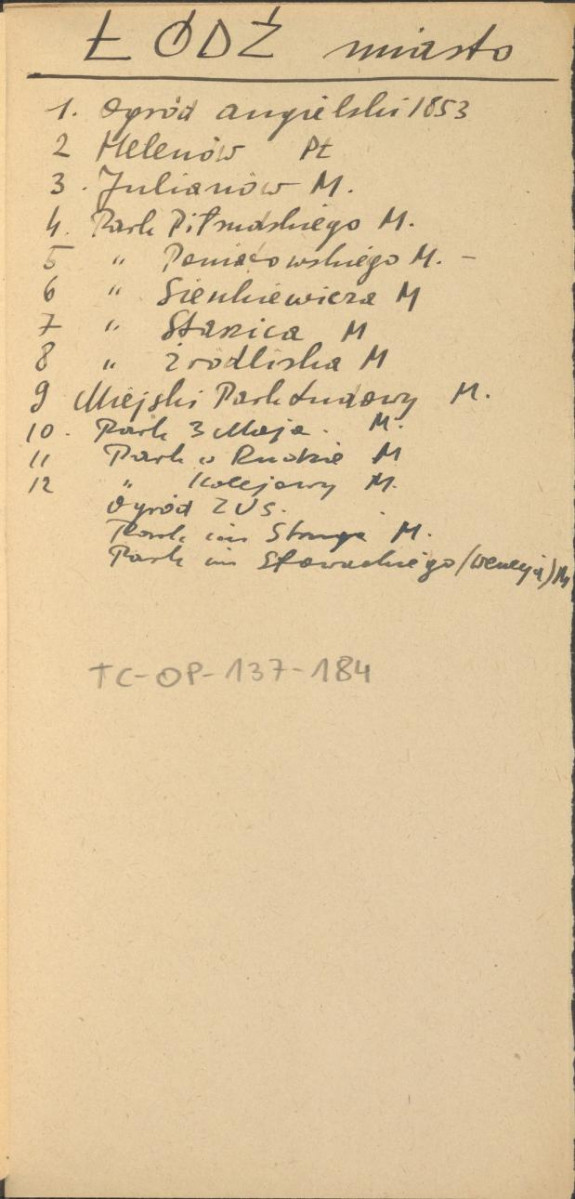 ŁÓDŹ miasto
1. Ogród angielski 1853
2 Helenów Pł
3. Julianów M.
4. Park Piłsudskiego M.
5 " Poniatowskiego M. -
6 " Sienkiewicza M
7 " Staszica M
8 " Źródliska M
9 Miejski Park Ludowy M.
10. Park 3 Maja. M.
11 Park w Rudzie M
12 " Kolejowy M.
Ogród ZUS.
Park im Struga M.
Park im Słowackiego (Wenecja) M
TC-OP-137-184